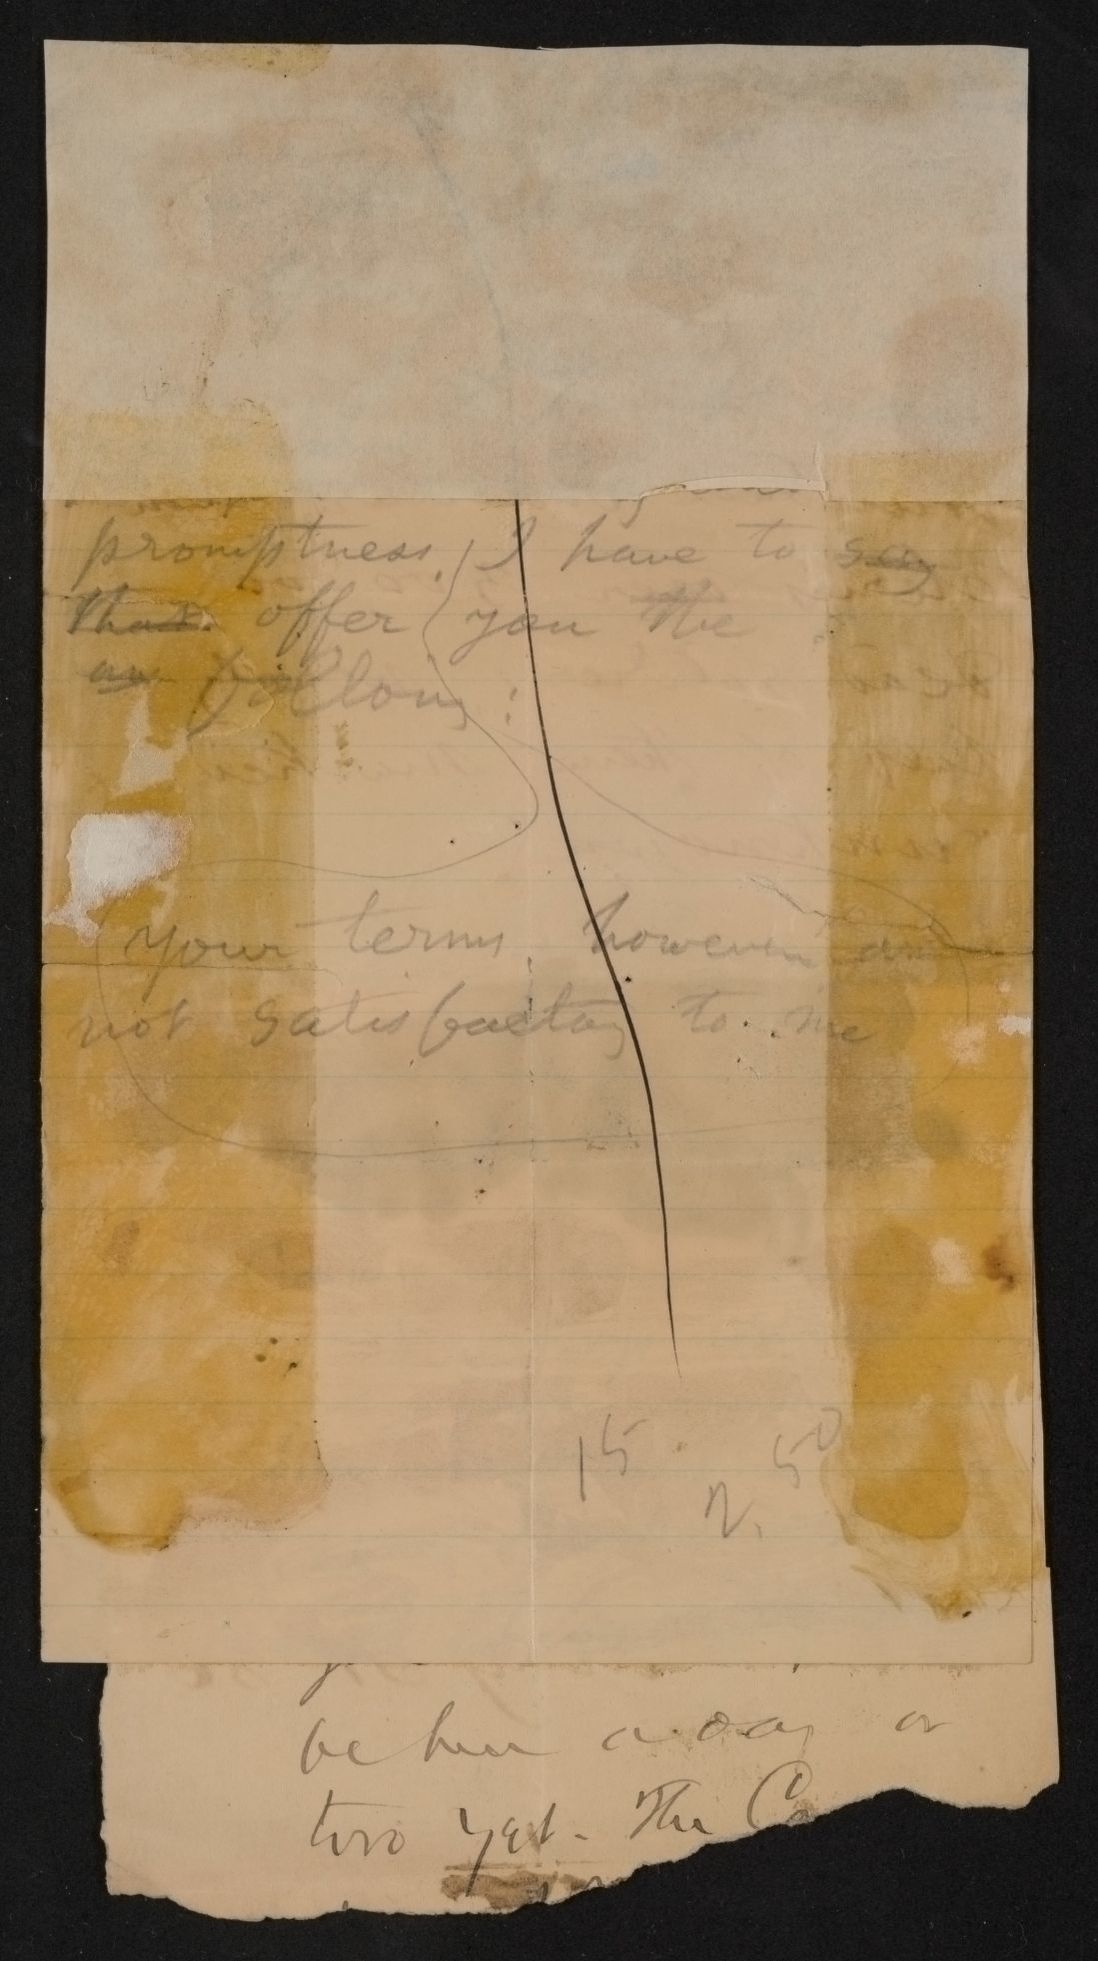 promptness. I have to say
that offer you the
as follows:
your terms, however are
not satisfactory to me
15
50
2.
be here a day or
two yet. The Co